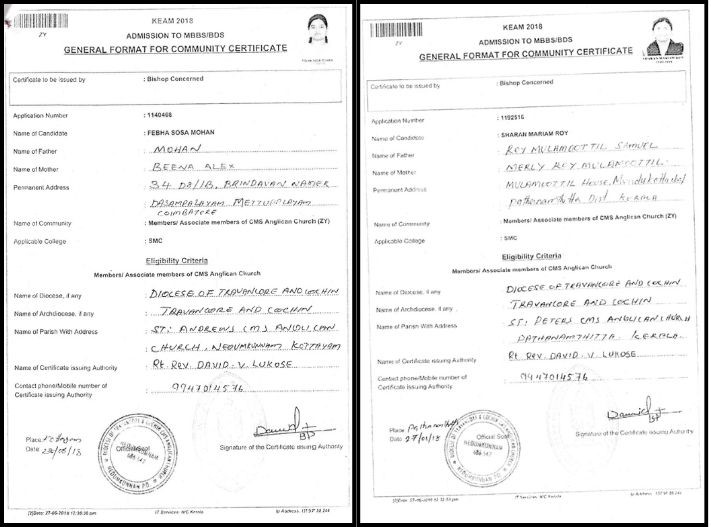 KEAM 2018
ZY
ADMISSION TO MBBS/BDS
GENERAL FORMAT FOR COMMUNITY CERTIFICATE
Certificate to be issued by : Bishop Concerned
Application Number : 1140468
Name of Candidate : FEBHA SOSA MOHAN
Name of Father : MOHAN
Name of Mother : BEENA ALEX
Permanent Address : 34 D8/1B, BRINDAVAN NAGER
DASAMPALAYAM METTUPALAYAM
COIMBATORE
Name of Community : Members/ Associate members of CMS Anglican Church (ZY)
Applicable College : SMC
Eligibility Criteria
Members/ Associate members of CMS Anglican Church
Name of Diocese, if any DIOCESE OF TRAVANCORE AND COCHIN
Name of Archdiocese, if any : TRAVANCORE AND COCHIN
Name of Parish With Address : ST: ANDREWS CMS ANGLICAN
CHURCH, NEDUMKUNNAM KOTTAYAM
Name of Certificate issuing Authority : Rt. REV. DAVID. V. LUKOSE
Contact phone/Mobile number of : 9947014576
Certificate issuing authority
Place
Date
Official Seal
NEDUMKUNNAM
Signature of the Certificate issuing Authority
KEAM 2018
ZY
ADMISSION TO MBBS/BDS
GENERAL FORMAT FOR COMMUNITY CERTIFICATE
Certificate to be issued by : Bishop Concerned
Application Number : 1192516
Name of Candidate : SHARAN MARIAM ROY
Name of Father : ROY MULAMOOTTIL SAMUEL
Name of Mother : MERLY ROY MULAMOOTTIL
Permanent Address : MULAMOOTTIL HOUSE,
Pathanamthitta Dist KERALA
Name of Community : Members/ Associate members of CMS Anglican Church (ZY)
Applicable College : SMC
Eligibility Criteria
Members/ Associate members of CMS Anglican Church
Name of Diocese, if any : DIOCESE OF TRAVANCORE AND COCHIN
Name of Archdiocese, if any : TRAVANCORE AND COCHIN
Name of Parish With Address : ST: PETERS CMS ANGLICAN CHURCH
PATHANAMTHITTA. KERALA.
Name of Certificate issuing Authority : Rt. REV. DAVID. V. LUKOSE
Contact phone/Mobile number of : 9447014576
Certificate issuing authority
Place
Date 27/01/18
Official Seal
NEDUMKUNNAM
Signature of the Certificate issuing Authority